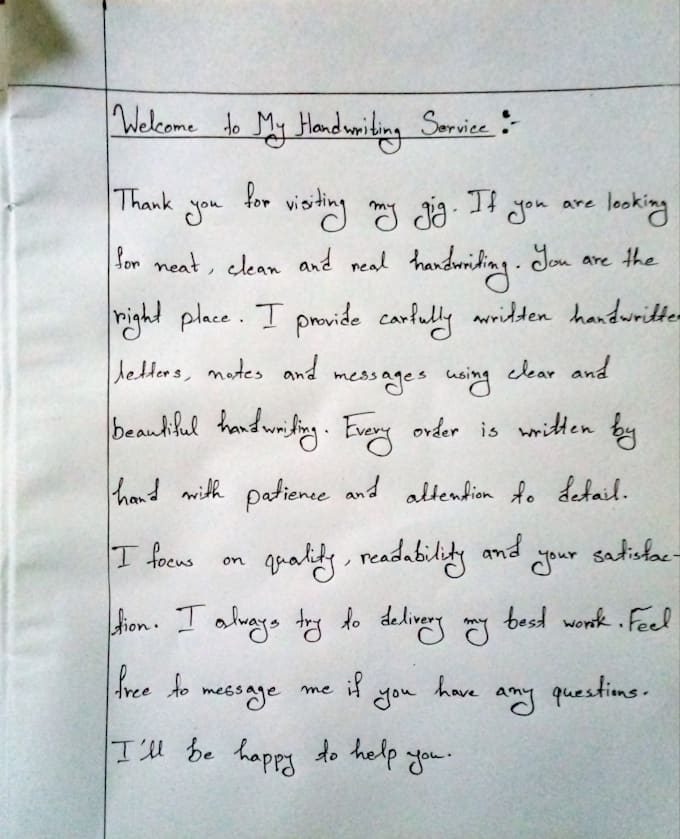 Welcome to My Handwriting Service :-
Thank you for visiting my gig. If you are looking
for neat, clean and real handwriting. You are the
right place. I provide carfully written handwritte
letters, notes and messages using clear and
beautiful handwriting. Every order is written by
hand with patience and attention to detail.
I focus on quality, readability and your satisfac-
tion. I always try to delivery my best work. Feel
free to message me if you have any questions.
I'll be happy to help you.